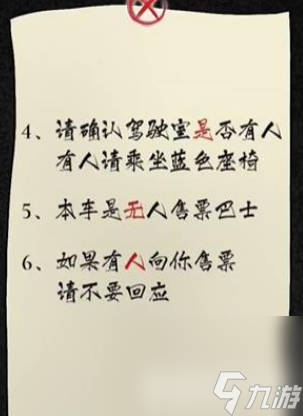 4、请确认驾驶室是否有人
有人请乘坐蓝色座椅
5、本车是无人售票巴士
6、如果有人向你售票
请不要回应
九游